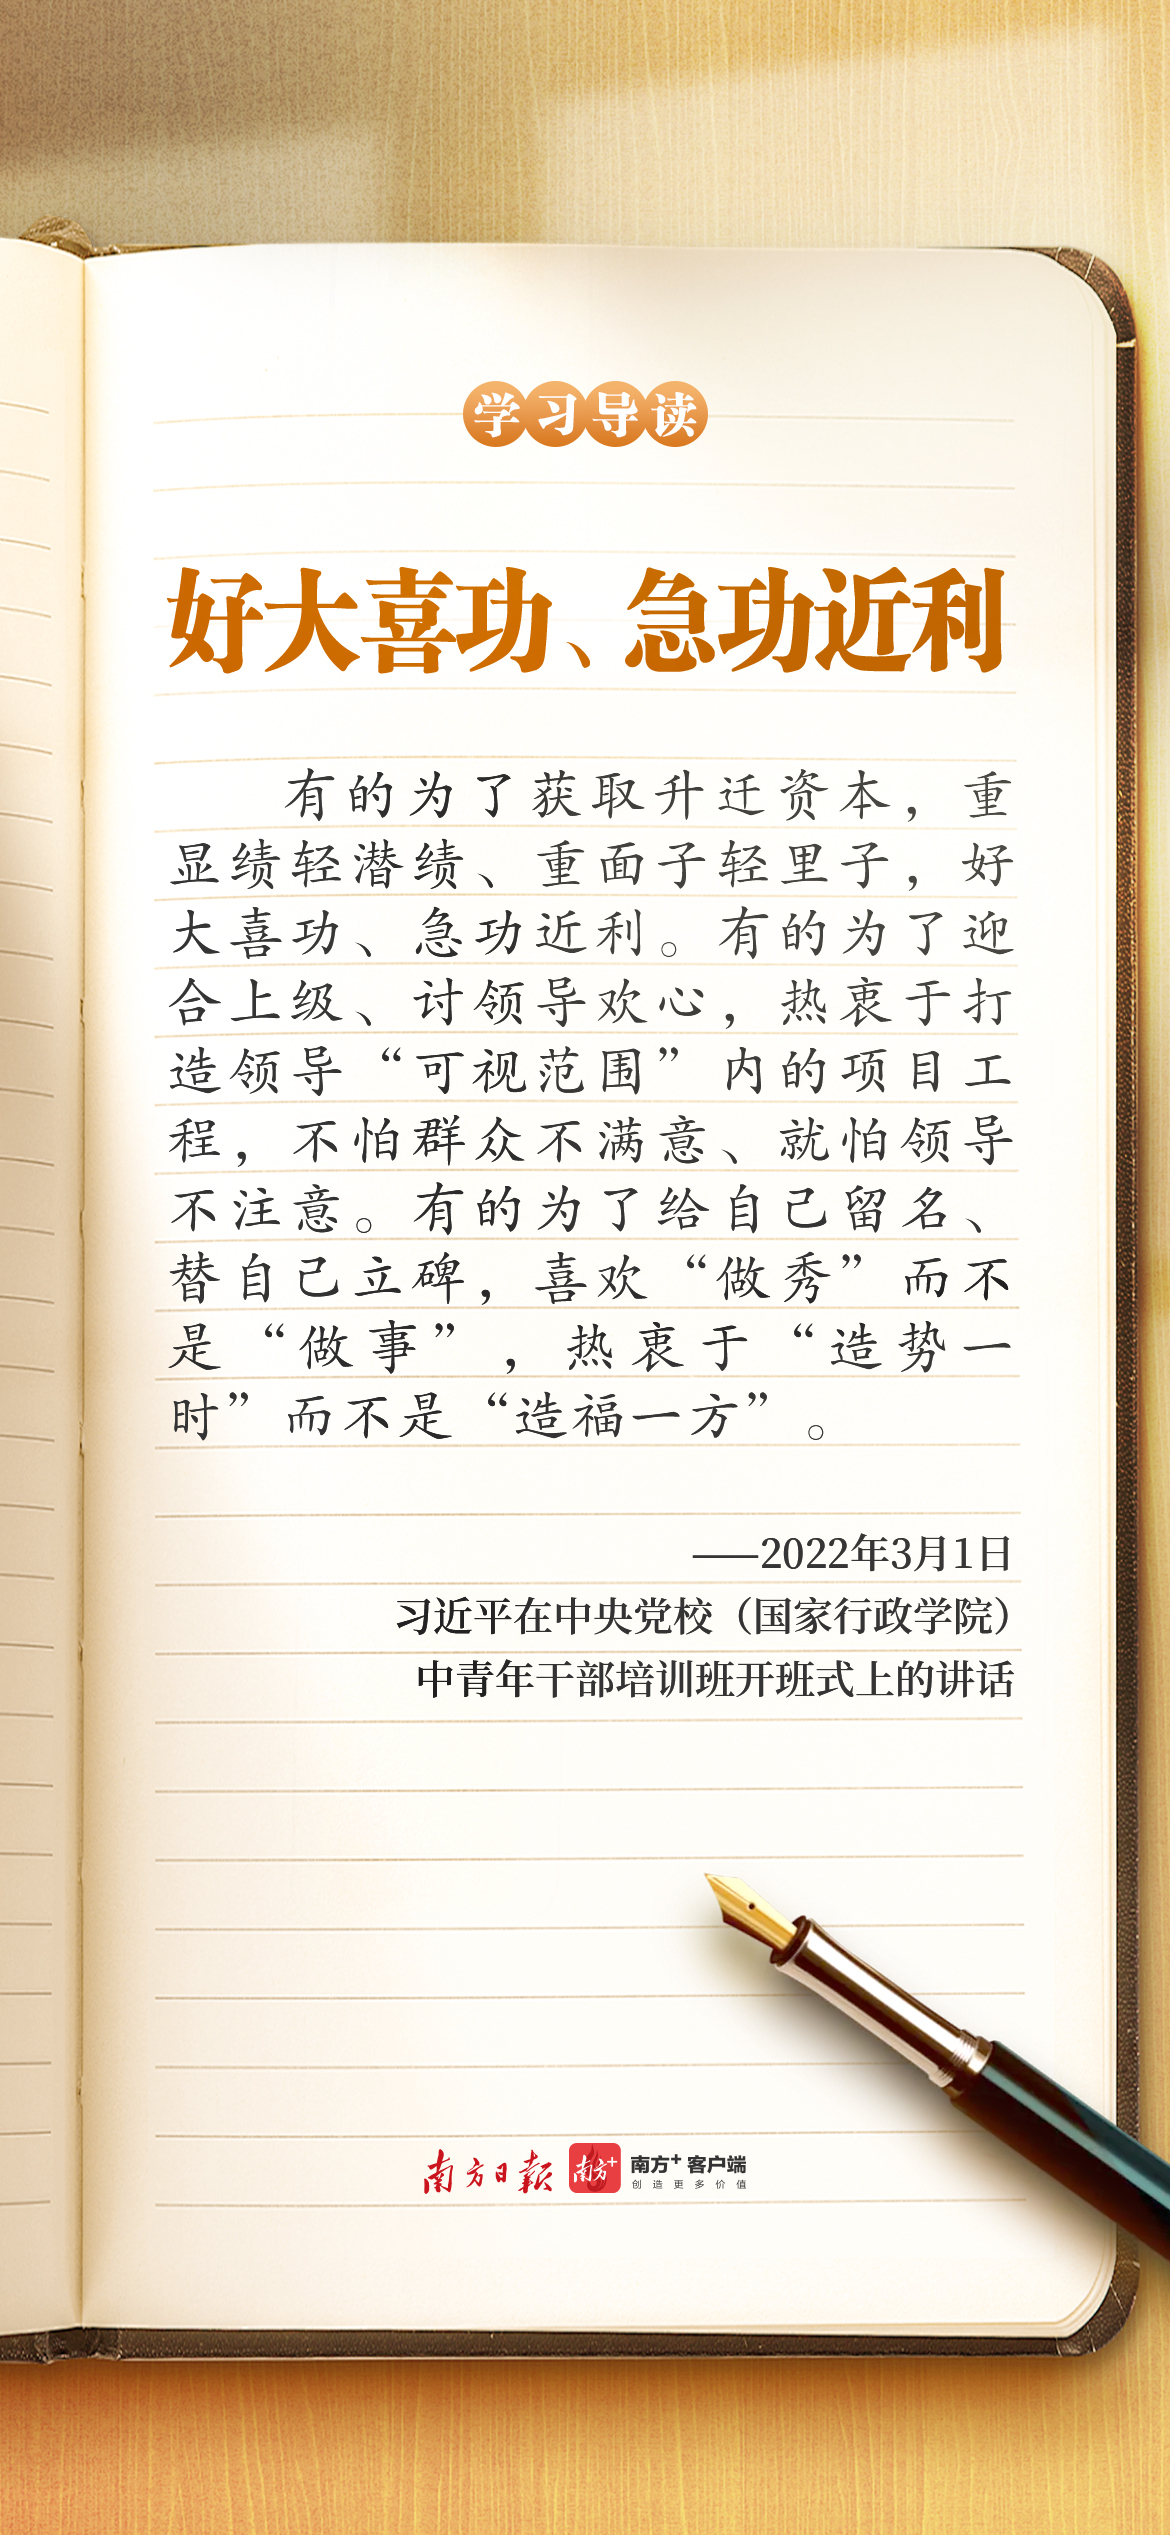 学习导读
好大喜功、急功近利
有的为了获取升迁资本，重
显绩轻潜绩、重面子轻里子，好
大喜功、急功近利。有的为了迎
合上级、讨领导欢心，热衷于打
造领导“可视范围”内的项目工
程，不怕群众不满意、就怕领导
不注意。有的为了给自己留名、
替自己立碑，喜欢“做秀”而不
是“做事”，热衷于“造势一
时”而不是“造福一方”。
——2022年3月1日
习近平在中央党校（国家行政学院）
中青年干部培训班开班式上的讲话
南方日报 南方+ 南方+客户端
创造更多价值